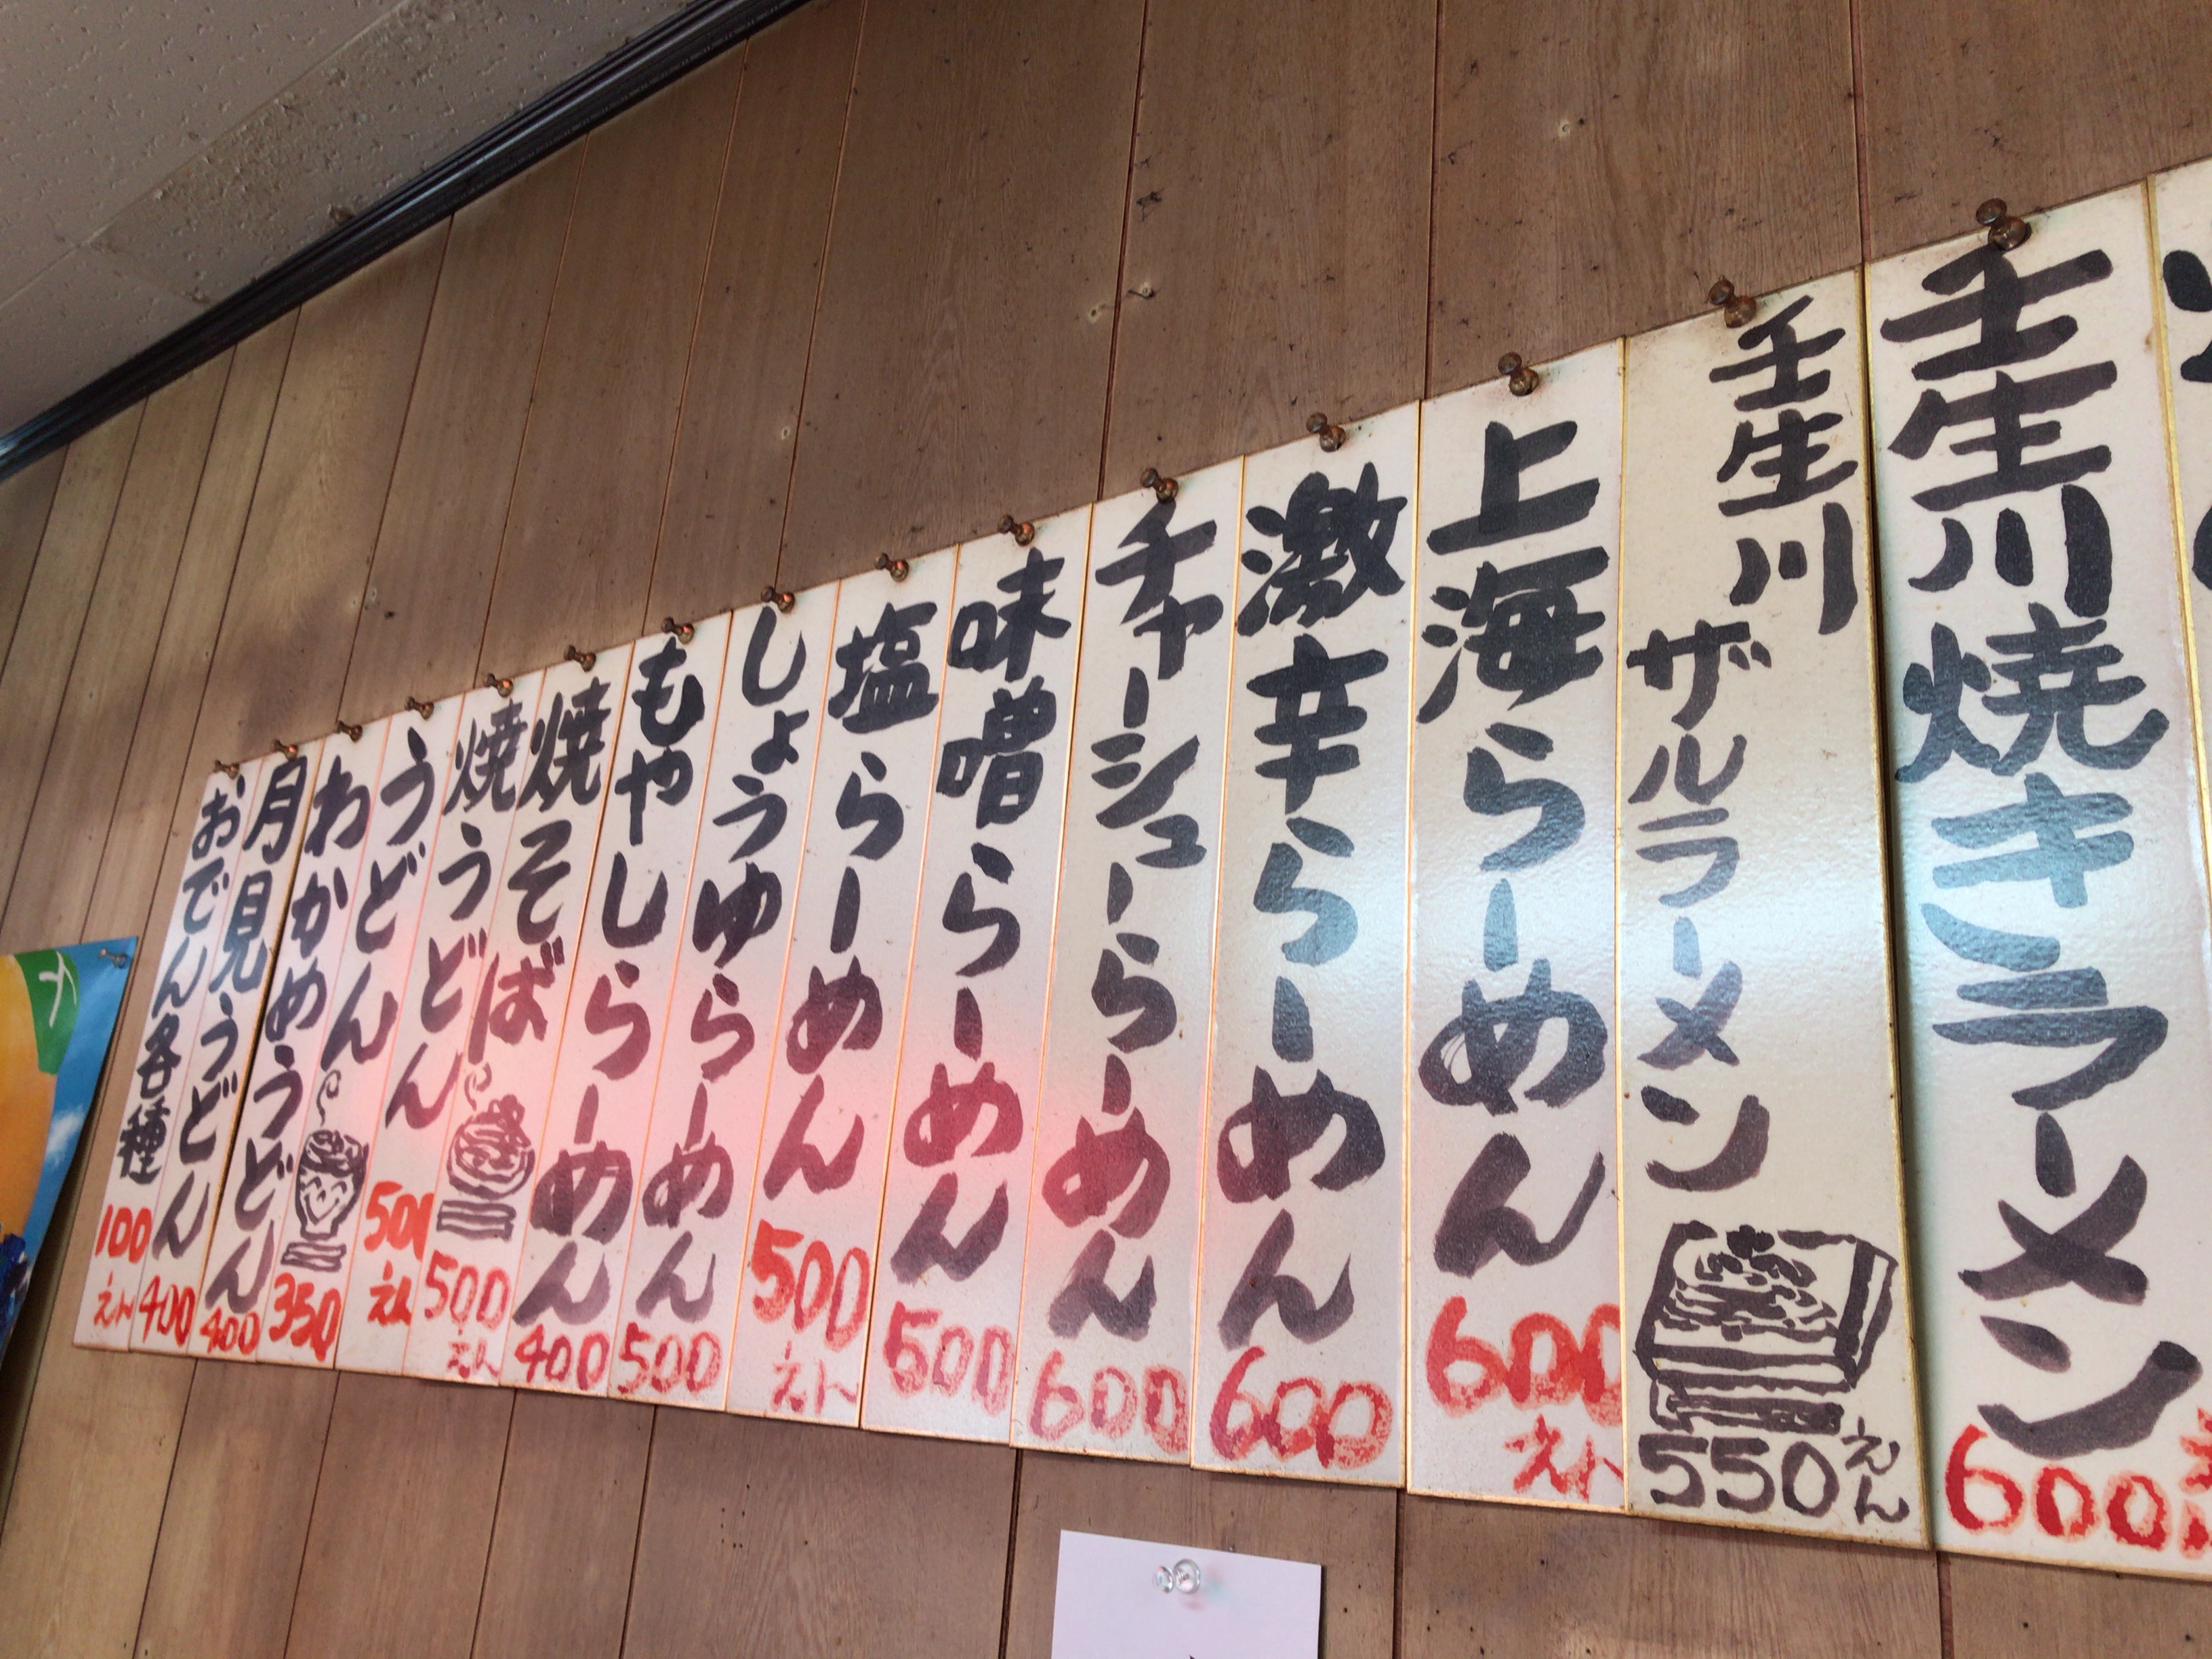 壬生川焼キラーメン
600
壬生川
ザルラーメン
550えん
上海らーめん
600
えん
激辛らーめん
600
チャーシューらーめん
600
味噌らーめん
500
塩らーめん
500
えん
しょうゆらーめん
500
もやしらーめん
400
焼そば
500
えん
焼うどん
500
えん
うどん
350
わかめうどん
400
月見うどん
400
おでん各種
100
えん